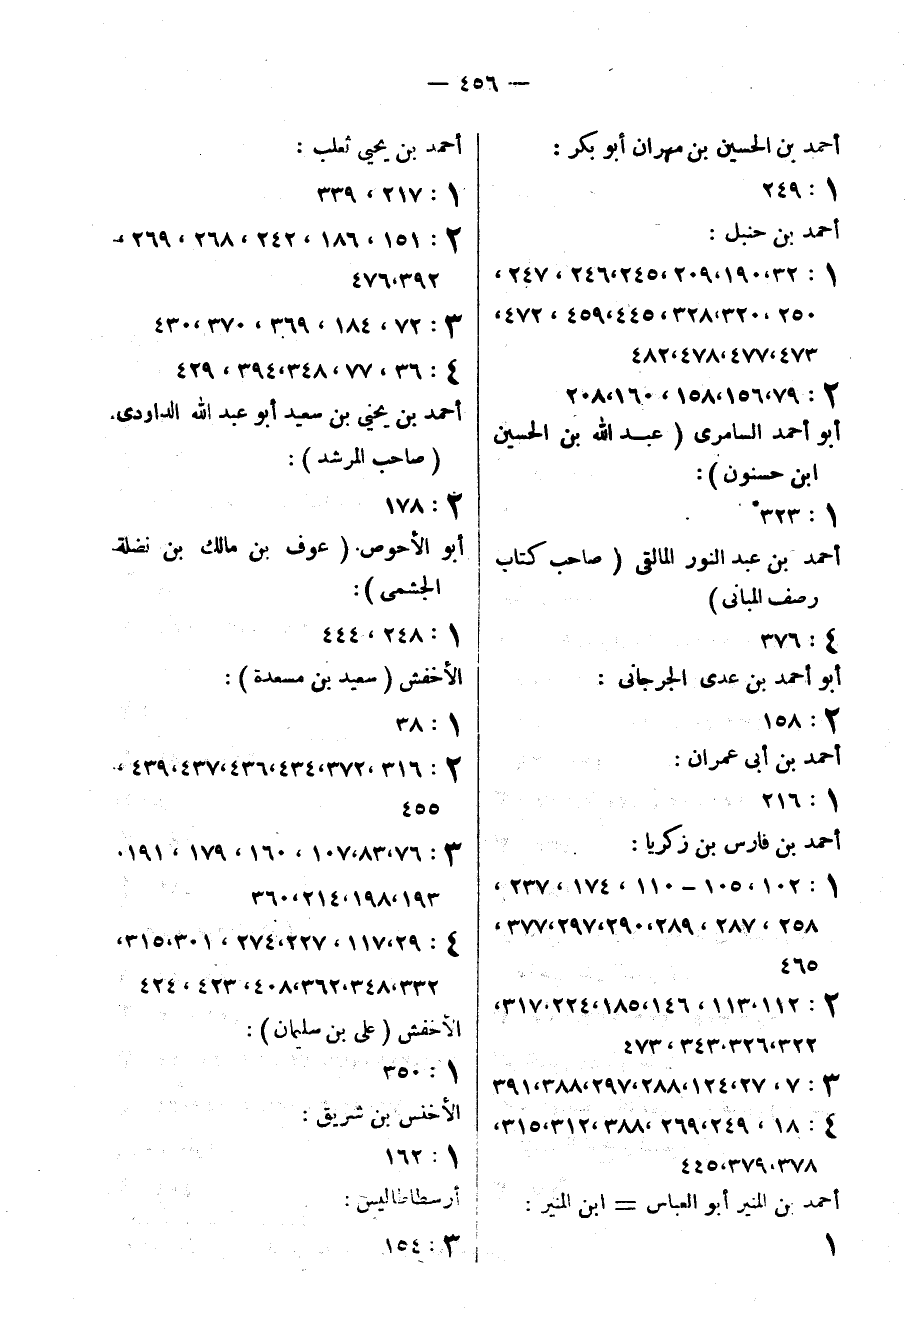 — ٤٥٦ —
أحمد بن الحسين بن مهران أبو بكر :
١ : ٢٤٩
أحمد بن حنبل :
١ : ٣٢، ١٩٠، ٢٠٩، ٢٤٥، ٢٤٦ ، ٢٤٧ ،
٢٥٠ ، ٣٢٠، ٣٢٨، ٤٤٥، ٤٥٩ ، ٤٧٢،
٤٧٣، ٤٧٧، ٤٧٨، ٤٨٢
٢ : ٧٩، ١٥٦، ١٥٨، ١٦٠ ، ٢٠٨
أبو أحمد السامرى ( عبد الله بن الحسين
ابن حسنون ) :
١ : ٣٢٣
أحمد بن عبد النور المالقى ( صاحب كتاب
رصف المبانى )
٤ : ٣٧٦
أبو أحمد بن عدى الجرجانى :
٢ : ١٥٨
أحمد بن أبى عمران :
١ : ٢١٦
أحمد بن فارس بن زكريا :
١ : ١٠٢ ، ١٠٥ – ١١٠ ، ١٧٤ ، ٢٣٧ ،
٢٥٨ ، ٢٨٧ ، ٢٨٩، ٢٩٠، ٢٩٧، ٣٧٧ ،
٤٦٥
٢ : ١١٢، ١١٣ ، ١٤٦، ١٨٥، ٢٢٤، ٣١٧،
٣٢٢، ٣٢٦، ٣٤٣ ، ٤٧٣
٣ : ٧ ، ٢٧ ، ١٢٤، ٢٨٨، ٢٩٧، ٣٨٨، ٣٩١
٤ : ١٨ ، ٢٤٩، ٢٦٩ ، ٣٨٨، ٣١٢، ٣١٥،
٣٧٨، ٣٧٩، ٤٤٥
أحمد بن المنير أبو العباس = ابن المنير :
١
أحمد بن يحيى ثعلب :
١ : ٢١٧ ، ٣٣٩
٢ : ١٥١ ، ١٨٦ ، ٢٤٢ ، ٢٦٨ ، ٢٦٩ ،
٣٩٢، ٤٧٦
٣ : ٧٢ ، ١٨٤ ، ٣٦٩ ، ٣٧٠ ، ٤٣٠
٤ : ٣٦ ، ٧٧ ، ٣٤٨، ٣٩٤ ، ٤٢٩
أحمد بن يحيى بن سعيد أبو عبد الله الداودى
( صاحب المرشد ) :
٢ : ١٧٨
أبو الأحوص ( عوف بن مالك بن نضلة
الجشمى ) :
١ : ٢٤٨ ، ٤٤٤
الأخفش ( سعيد بن مسعدة ) :
١ : ٣٨
٢ : ٣١٦ ، ٣٧٢، ٤٣٤، ٤٣٦، ٤٣٧، ٤٣٩ ،
٤٥٥
٣ : ٧٦، ٨٣، ١٠٧ ، ١٦٠ ، ١٧٩ ، ١٩١،
١٩٣، ١٩٨، ٢١٤، ٣٦٠
٤ : ٢٩، ١١٧ ، ٢٢٧، ٢٧٤ ، ٣٠١، ٣١٥،
٣٣٢، ٣٤٨، ٣٦٢، ٤٠٨، ٤٢٣ ، ٤٢٤
الأخفش ( على بن سليمان ) :
١ : ٣٥٠
الأخنس بن شريق :
١ : ١٦٢
أرسطاطاليس :
٣ : ١٥٤